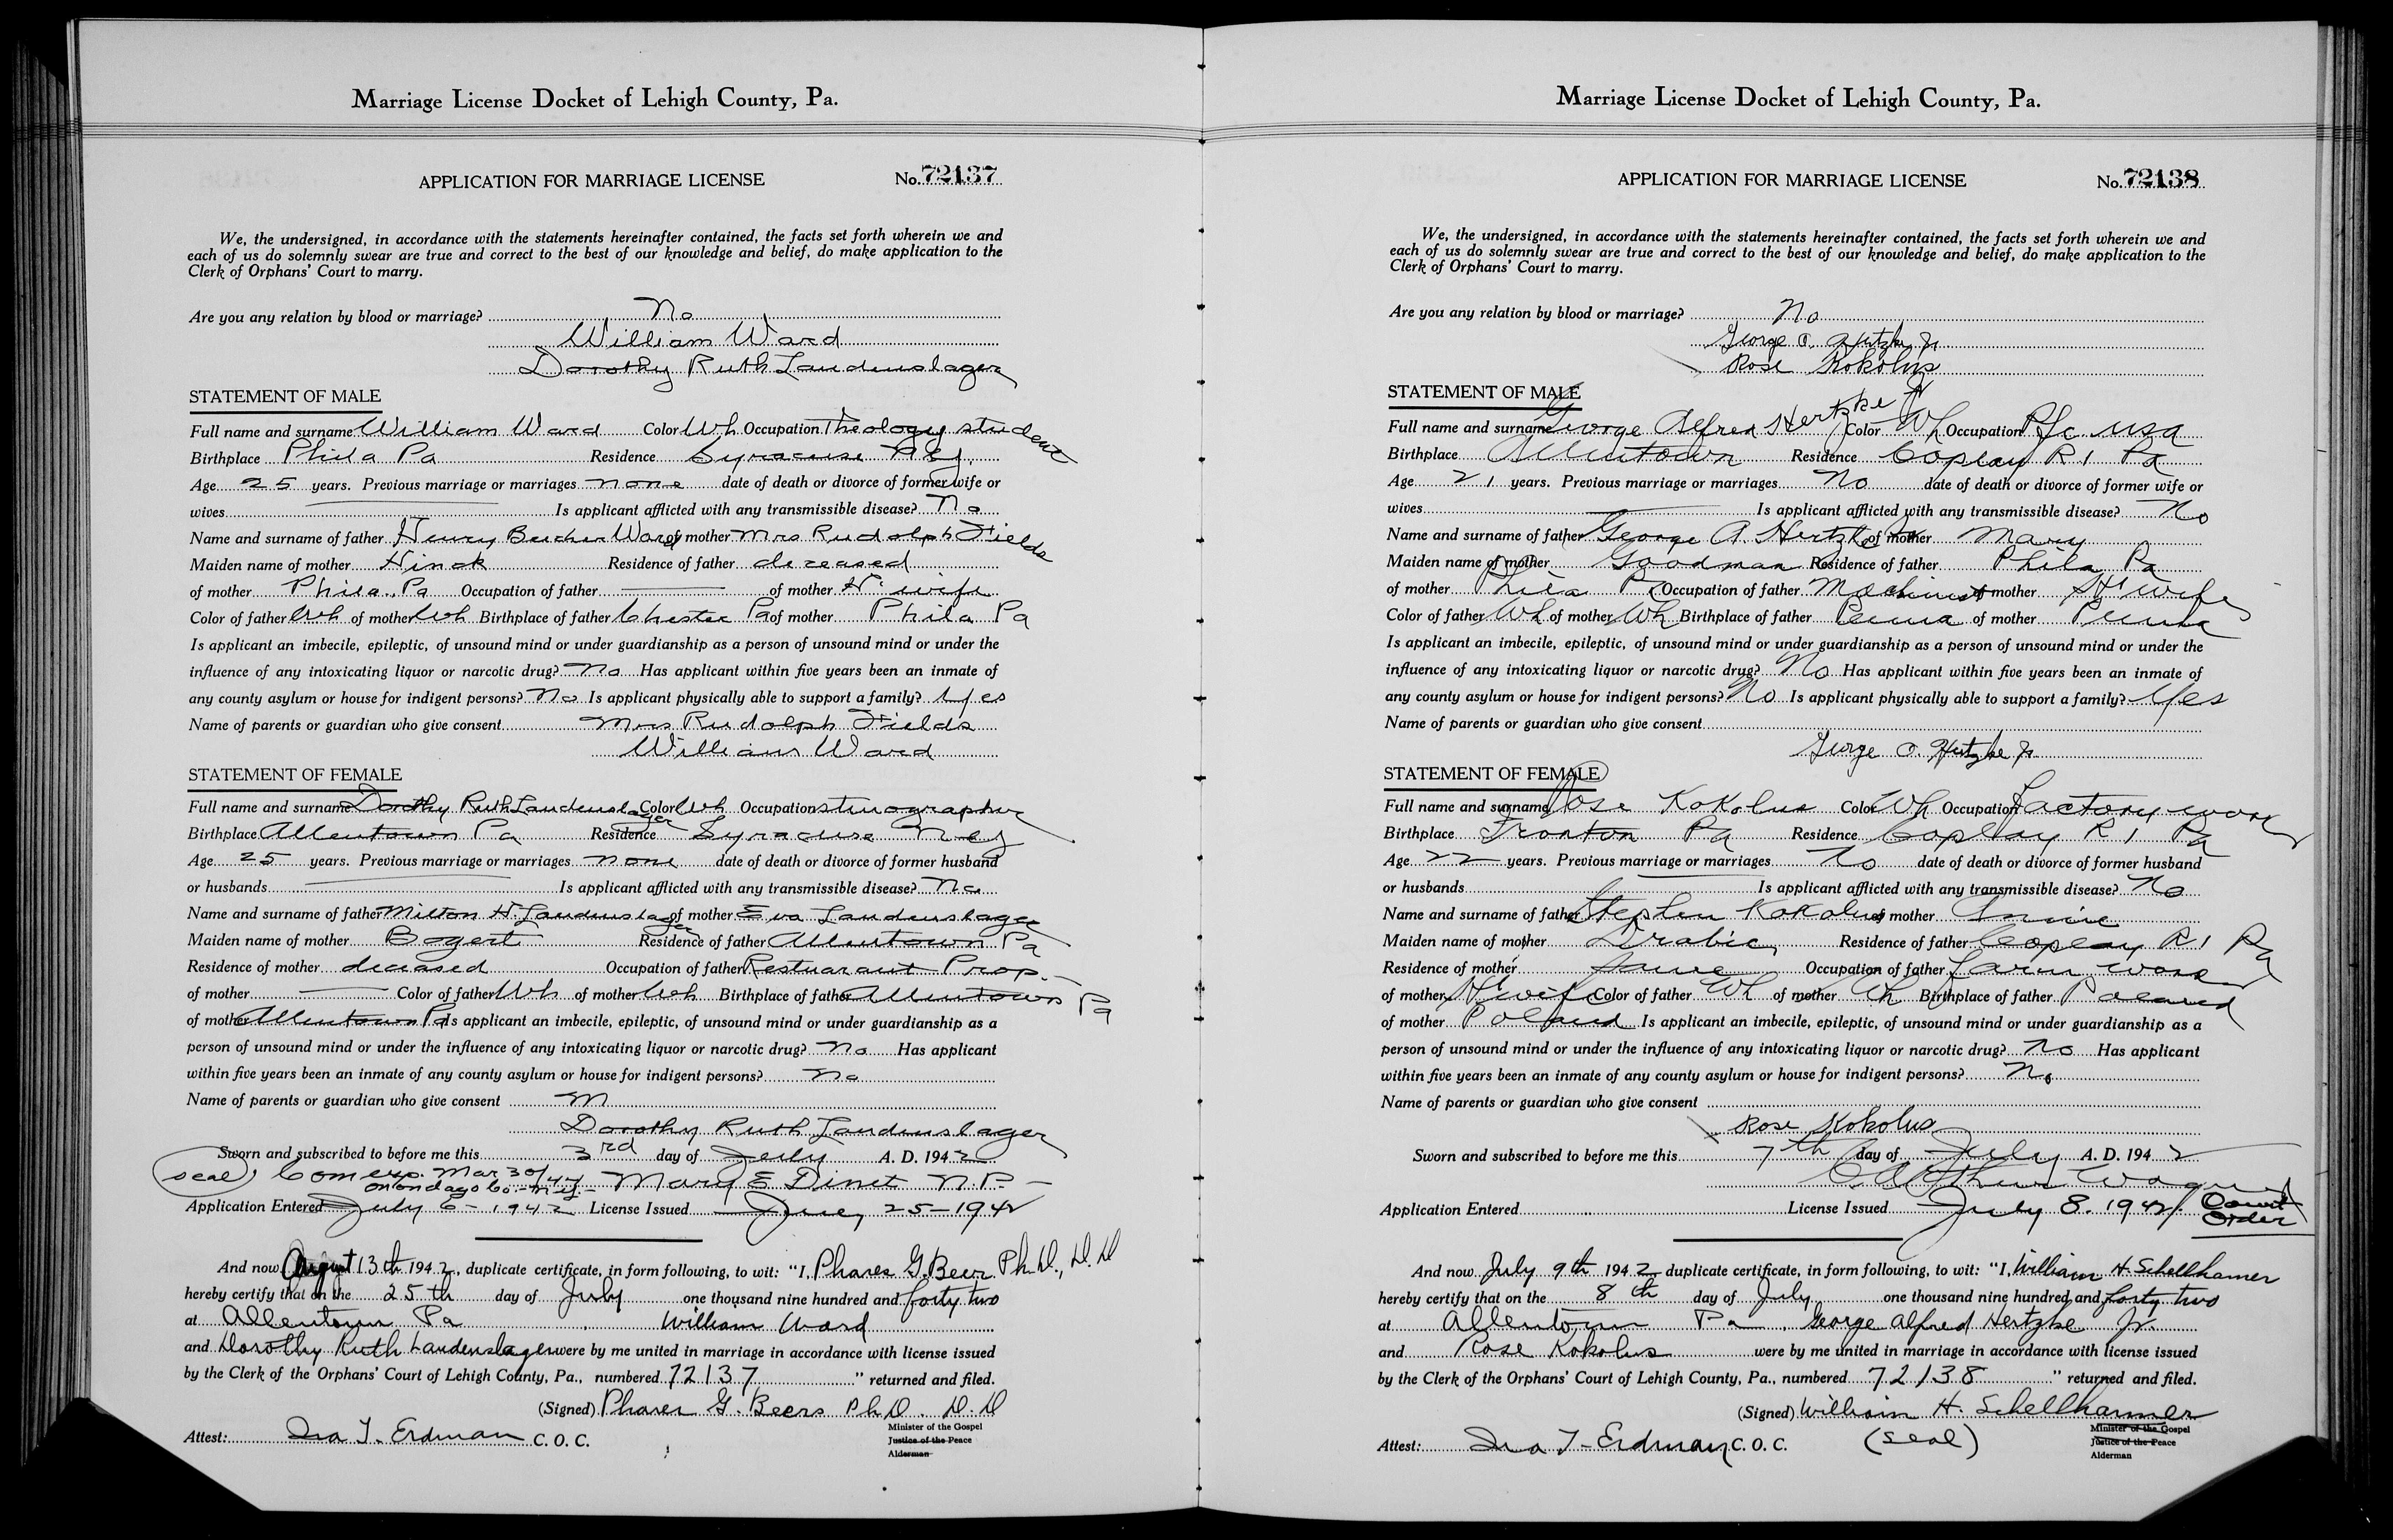 Marriage License Docket of Lehigh County, Pa.
APPLICATION FOR MARRIAGE LICENSE No. 72137
We, the undersigned, in accordance with the statements hereinafter contained, the facts set forth wherein we and
each of us do solemnly swear are true and correct to the best of our knowledge and belief, do make application to the
Clerk of Orphans' Court to marry.
Are you any relation by blood or marriage? No
William Ward
Dorothy Ruth Laudenslager
STATEMENT OF MALE
Full name and surname William Ward Color Wh Occupation Theology student
Birthplace Phila Pa Residence Syracuse N.Y.
Age 25 years. Previous marriage or marriages none date of death or divorce of former wife or
wives Is applicant afflicted with any transmissible disease? No
Name and surname of father Henry Beecher Ward of mother Mrs Rudolph Fields
Maiden name of mother Hinck Residence of father deceased
of mother Phila., Pa Occupation of father of mother H. wife
Color of father Wh of mother Wh Birthplace of father Chester Pa of mother Phila Pa
Is applicant an imbecile, epileptic, of unsound mind or under guardianship as a person of unsound mind or under the
influence of any intoxicating liquor or narcotic drug? No Has applicant within five years been an inmate of
any county asylum or house for indigent persons? No Is applicant physically able to support a family? Yes
Name of parents or guardian who give consent Mrs Rudolph Fields
William Ward
STATEMENT OF FEMALE
Full name and surname Dorothy Ruth Laudenslager Color Wh Occupation stenographer
Birthplace Allentown Pa Residence Syracuse N.Y
Age 25 years. Previous marriage or marriages none date of death or divorce of former husband
or husbands Is applicant afflicted with any transmissible disease? No
Name and surname of father Milton H. Laudenslager of mother Eva Laudenslager
Maiden name of mother Bogert Residence of father Allentown Pa
Residence of mother deceased Occupation of father Restuarant Prop.
of mother Color of father Wh of mother Wh Birthplace of father Allentown Pa
of mother Allentown Pa Is applicant an imbecile, epileptic, of unsound mind or under guardianship as a
person of unsound mind or under the influence of any intoxicating liquor or narcotic drug? No Has applicant
within five years been an inmate of any county asylum or house for indigent persons? No
Name of parents or guardian who give consent M
Dorothy Ruth Laudenslager
Sworn and subscribed to before me this 3rd day of July A. D. 1942
(seal) Com exp. Mar 30/44 Mary E Dinet N.P.
Onondaga Co. - N.Y.
Application Entered July 6 - 1942 License Issued June, 25-1942
And now August 13th 1942, duplicate certificate, in form following, to wit: "I, Phares G. Beer Ph.D., D.D
hereby certify that on the 25th day of July one thousand nine hundred and forty two
at Allentown Pa William Ward
and Dorothy Ruth Laudenslager were by me united in marriage in accordance with license issued
by the Clerk of the Orphans' Court of Lehigh County, Pa., numbered 72137 " returned and filed.
(Signed) Phares G. Beers Ph.D. D.D
Minister of the Gospel
Justice of the Peace
Alderman
Attest: Ira T. Erdman C. O. C.
Marriage License Docket of Lehigh County, Pa.
APPLICATION FOR MARRIAGE LICENSE No. 72138
We, the undersigned, in accordance with the statements hereinafter contained, the facts set forth wherein we and
each of us do solemnly swear are true and correct to the best of our knowledge and belief, do make application to the
Clerk of Orphans' Court to marry.
Are you any relation by blood or marriage? No
George A. Hertzke Jr
Rose Kokolus
STATEMENT OF MALE
Full name and surname George Alfred Hertzke Jr Color Wh Occupation Pfc USA
Birthplace Allentown Residence Coplay R 1 Pa
Age 21 years. Previous marriage or marriages No date of death or divorce of former wife or
wives Is applicant afflicted with any transmissible disease? No
Name and surname of father George A. Hertzke Sr of mother Mary
Maiden name of mother Goodman Residence of father Phila Pa
of mother Phila Pa Occupation of father Machinist of mother H. wife
Color of father Wh of mother Wh Birthplace of father Penna of mother Penna
Is applicant an imbecile, epileptic, of unsound mind or under guardianship as a person of unsound mind or under the
influence of any intoxicating liquor or narcotic drug? No Has applicant within five years been an inmate of
any county asylum or house for indigent persons? No Is applicant physically able to support a family? Yes
Name of parents or guardian who give consent
George A. Hertzke Jr
STATEMENT OF FEMALE
Full name and surname Rose Kokolus Color Wh Occupation factory work
Birthplace Ironton Pa Residence Coplay R 1 Pa
Age 22 years. Previous marriage or marriages No date of death or divorce of former husband
or husbands Is applicant afflicted with any transmissible disease? No
Name and surname of father Stephen Kokolus of mother Annie
Maiden name of mother Drabic Residence of father Coplay R 1 Pa
Residence of mother same Occupation of father farm work
of mother H. wife Color of father Wh of mother Wh Birthplace of father Poland
of mother Poland Is applicant an imbecile, epileptic, of unsound mind or under guardianship as a
person of unsound mind or under the influence of any intoxicating liquor or narcotic drug? No Has applicant
within five years been an inmate of any county asylum or house for indigent persons? No
Name of parents or guardian who give consent
Rose Kokolus
Sworn and subscribed to before me this 7th day of July A. D. 1942
Wagner
Application Entered License Issued July 8. 1942 / Court Order
And now July 9th 1942 duplicate certificate, in form following, to wit: "I, William H. Schellhamer
hereby certify that on the 8th day of July one thousand nine hundred and forty two
at Allentown Pa. George Alfred Hertzke Jr.
and Rose Kokolus were by me united in marriage in accordance with license issued
by the Clerk of the Orphans' Court of Lehigh County, Pa., numbered 72138 " returned and filed.
(Signed) William H. Schellhammer
Minister of the Gospel
Justice of the Peace
Alderman
Attest: Ira T. Erdman C. O. C. (seal)